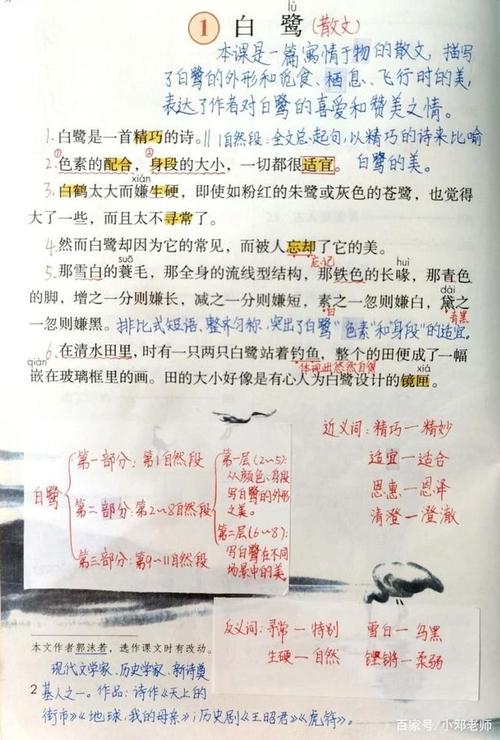 lù
1 白 鹭 (散文)
本课是一篇寓情于物的散文，描写
了白鹭的外形和觅食、栖息、飞行时的美，
表达了作者对白鹭的喜爱和赞美之情。
1.白鹭是一首精巧的诗。 || 1自然段：全文总起句，以精巧的诗来比喻
2.色素的配合，身段的大小，一切都很适宜。 白鹭的美。
① ②
xián
3.白鹤太大而嫌生硬，即使如粉红的朱鹭或灰色的苍鹭，也觉得
大了一些，而且太不寻常了。
4.然而白鹭却因为它的常见，而被人忘却了它的美。
忘记
suō huì
5.那雪白的蓑毛，那全身的流线型结构，那铁色的长喙，那青色
dài
的脚，增之一分则嫌长，减之一分则嫌短，素之一忽则嫌白，黛之
白 青黑
一忽则嫌黑。 排比式短语，整齐匀称，突出了白鹭“色素”和“身段”的适宜。
6.在清水田里，时有一只两只白鹭站着钓鱼，整个的田便成了一幅
qiàn 休闲 xiá
嵌在玻璃框里的画。田的大小好像是有心人为白鹭设计的镜匣。
白鹭
第一部分：第1自然段
第二部分：第2~8自然段
第三部分：第9~11自然段
第一层(2~5):
从颜色、身段
写白鹭的外形
之美。
第二层(6~8):
写白鹭在不同
场景中的美
近义词：精巧—精妙
适宜—适合
恩惠—恩泽
清澄—澄澈
反义词：寻常—特别 雪白—乌黑
生硬—自然 铿锵—柔弱
本文作者郭沫若，选作课文时有改动。
现代文学家、历史学家、新诗奠
2 基人之一。作品：诗作《天上的
街市》《地球，我的母亲》；历史剧《王昭君》《虎符》。
百家号/小邓老师